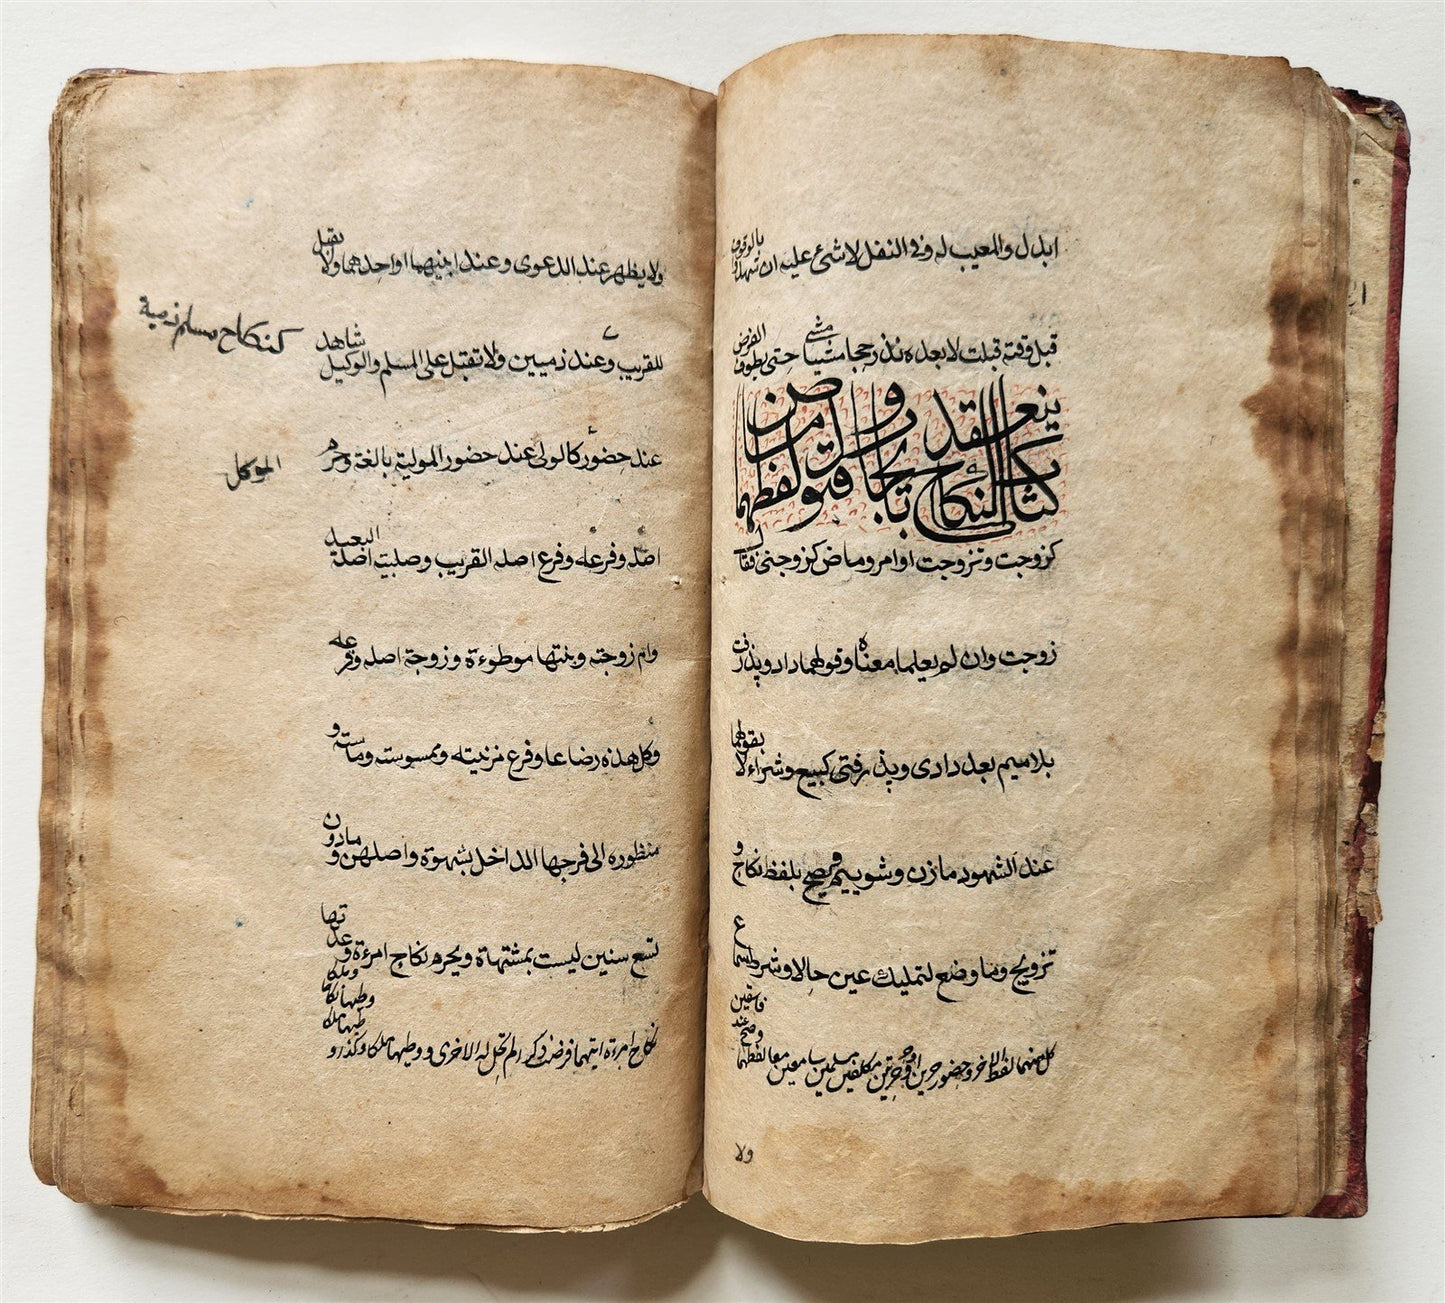 ابدل والمعيب له وفى النفل لاشئ عليه ان شهدوا بالوقوف
قبل وقته قبلت لا بعده نذر حجا مشيا مشى حتى يطوف الفرض
كتاب النكاح ينعقد بايجاب وقبول لفظهما ماض
كزوجت وتزوجت او امر وماض كزوجنى فقال
زوجت وان لم يعلما معناه وقولهما داد وپذرفت
بلا ميم بعد دادى وپذرفتى كبيع وشراء لا بقولهما
عند الشهود مازن وشوييم ويصح بلفظ نكاح و
تزويج وما وضع لتمليك عين حالا وشرط سماع
كل منهما لفظ الاخر وحضور حرين او حر وحرتين مكلفين مسلمين سامعين معا لفظهما وصح عند فاسقين
ولا
ولا يظهر عند الدعوى وعند ابنيهما او احدهما ولا يقبل
للقريب وعند ذميين ولا تقبل على المسلم والوكيل شاهد
كنكاح مسلم ذمية
عند حضور كالولى عند حضور المولية بالغة وحرم
الموكل
اصله وفرعه وفرع اصله القريب وصلبية اصله البعيد
وام زوجته وبنتها موطوءة وزوجة اصله وفرعه
وكل هذه رضاعا وفرع مزنيته وممسوسته وماسته و
منظوره الى فرجها الداخل بشهوة واصلهن وما دون
تسع سنين ليست بمشتهاة ويحرم نكاح امرءة وعدتها
نكاح امرءة ايتهما فرضت ذكرا لم تحل له الاخرى ووطيها ملكا وكذا